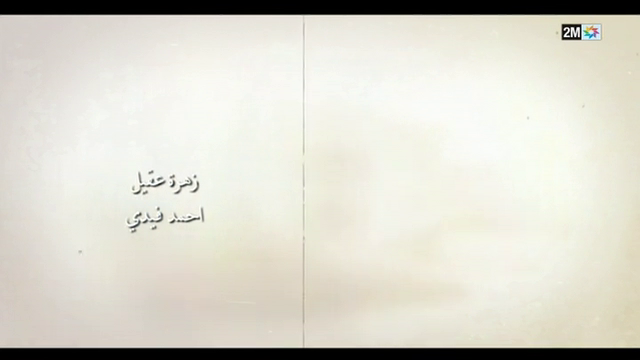 2M
زهرة عقيل
احمد فيدي